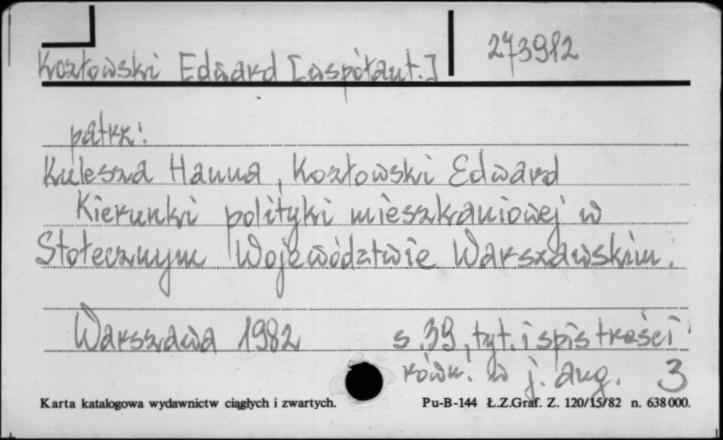 273982
Kozłowski Edward [współaut.]
patrz:
Kulesza Hanna, Kozłowski Edward
Kierunki polityki mieszkaniowej w
Stołecznym Województwie Warszawskim.
Warszawa 1982 s. 39, tyt. i spis treści
równ. w j. ang. 3
Karta katalogowa wydawnictw ciągłych i zwartych. Pu-B-144 Ł.Z.Graf. Z. 120/15/82 n. 638000.